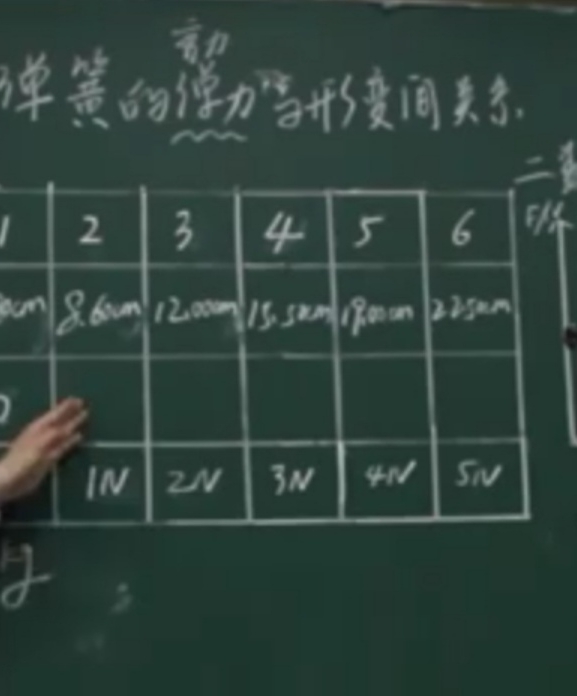 弹簧的弹力与形变间关系.
二
1 2 3 4 5 6
0cm 8.60cm 12.00cm 15.50cm 19.00cm 22.50cm
0
1N 2N 3N 4N 5N